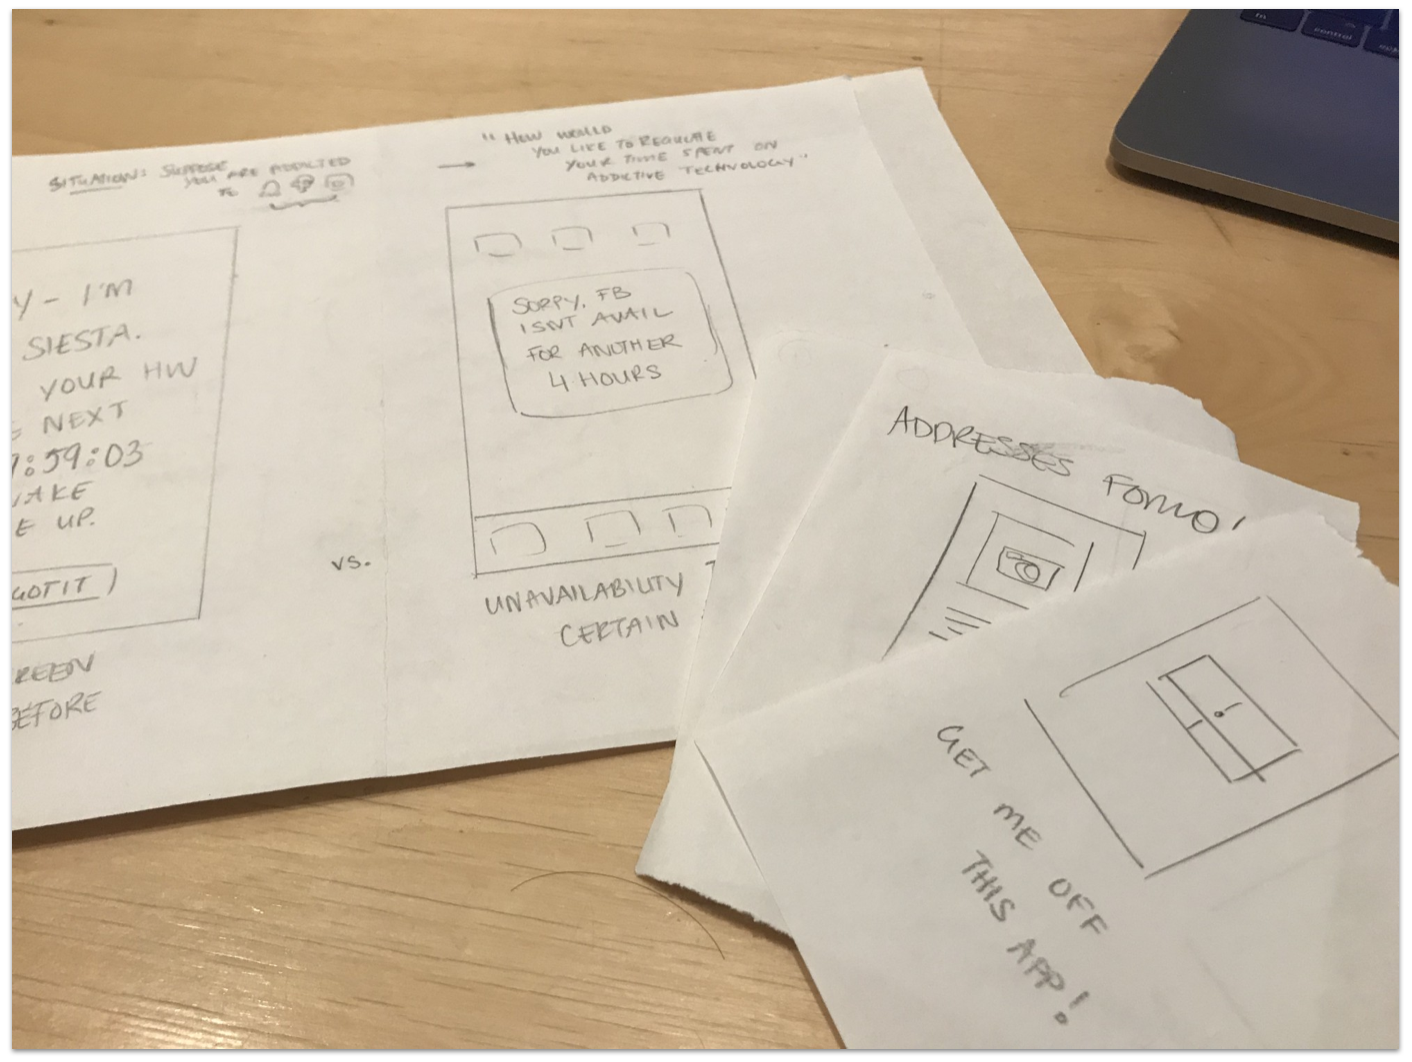 SITUATION: SUPPOSE
YOU ARE ADDICTED
TO
"HOW WOULD
YOU LIKE TO REGULATE
YOUR TIME SPENT ON
ADDICTIVE TECHNOLOGY"
Y - I'M
SIESTA.
YOUR HW
E NEXT
:59:03
AKE
E UP.
GOT IT
REEN
BEFORE
vs.
SORRY, FB
ISNT AVAIL
FOR ANOTHER
4 HOURS
UNAVAILABILITY
CERTAIN
ADDRESSES FOMO!
GET
ME OFF
THIS APP!
fn
control